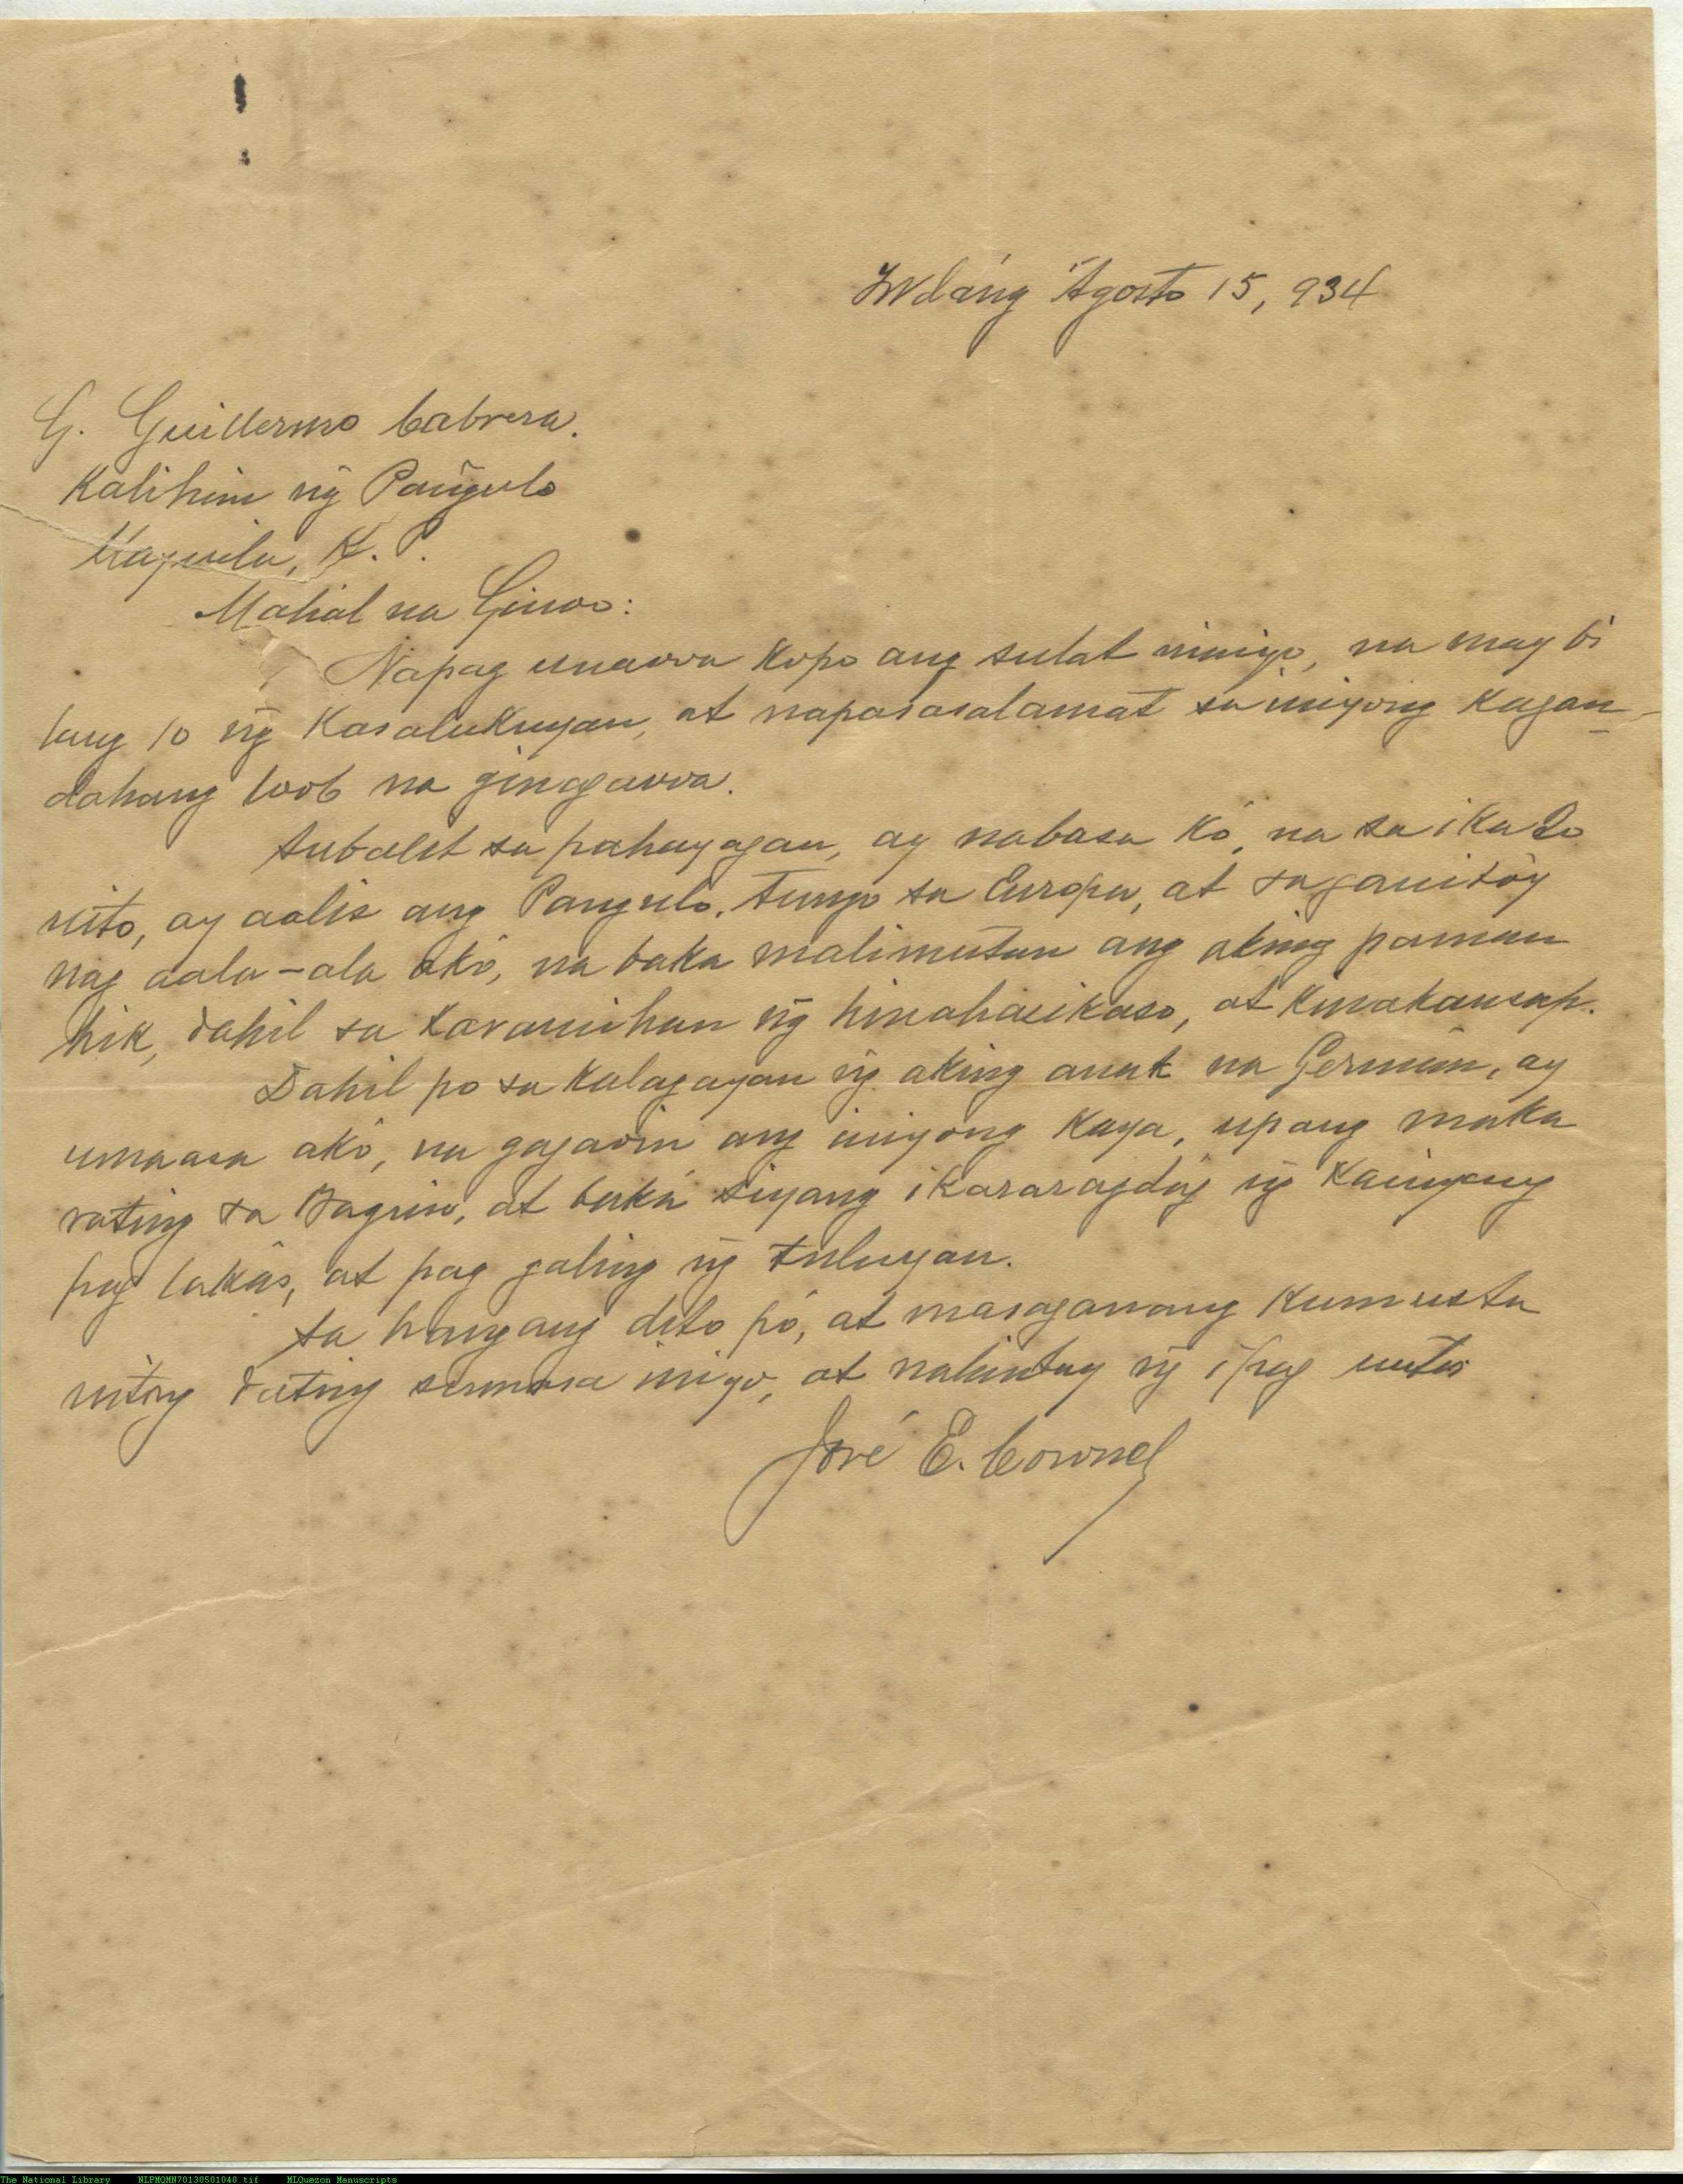 Indáng Agosto 15, 934
G. Guillermo Cabrera.
Kalihim ng̃ Pang̃ulo
Maynila, K. P.
Mahal na Ginoo:
Napag unawa kopo ang sulat ninyo, na may bi
lang 10 ng̃ kasalukuyan, at napasasalamat sa inyong kagan-
dahang loob na ginagawa.
Subalit sa pahayagan, ay nabasa kó, na sa ika 20
nito, ay aalis ang Pangulo, tungo sa Europa, at sa ganitó'y
nag aala-ala akó, na baka malimutan ang aking paman
hik, dahil sa karamihan ng̃ hinahaeikaso, at kinakausap.
Dahil po sa kalagayan ng̃ aking anak na Germán, ay
umaasa akó, na gagawin ang inyong kaya, upang maka
rating sa Baguio, at baká siyang ikararagdag ng̃ kaniyang
pag lakás, at pag galing ng̃ tuluyan.
Sa hangang dito pó, at masaganang kumusta
nitong dating sumasa inyo, at nahintay ng̃ ipag uutos
José E. Coronel
The National Library NLPMQMN70130501040.tif MLQuezon Manuscripts